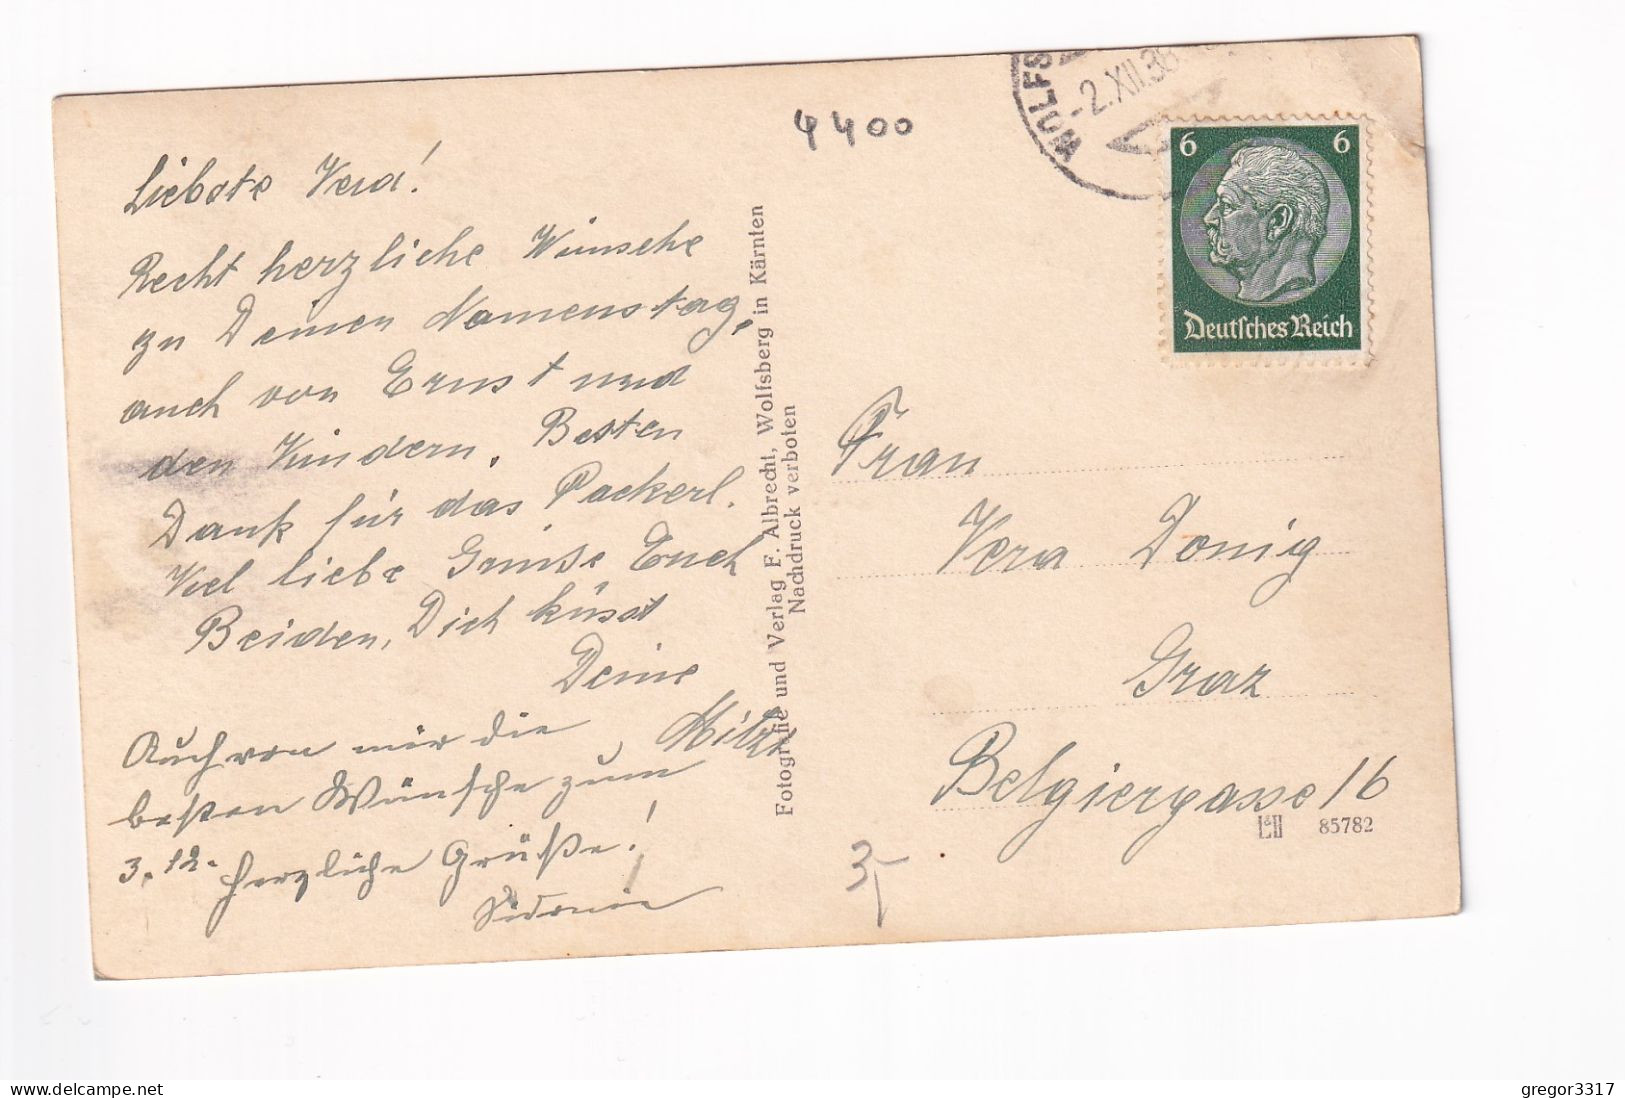 4400
WOLFS
-2.XII.38
6 6
Deutsches Reich
Liebste Vera!
Recht herzliche Wünsche
zu Deinen Namenstag,
auch von Ernst und
den Kindern. Besten
Dank für das Packerl.
Viel liebe Grüsse Euch
Beiden, Dich küsst
Deine
Mitzi
Auch von mir die
besten Wünsche zum
3.12. herzliche Grüße!
Sidonie
Fotografie und Verlag F. Albrecht, Wolfsberg in Kärnten
Nachdruck verboten
Frau
Vera Donig
Graz
Belgiergasse 16
L&H 85782
3,-
gregor3317